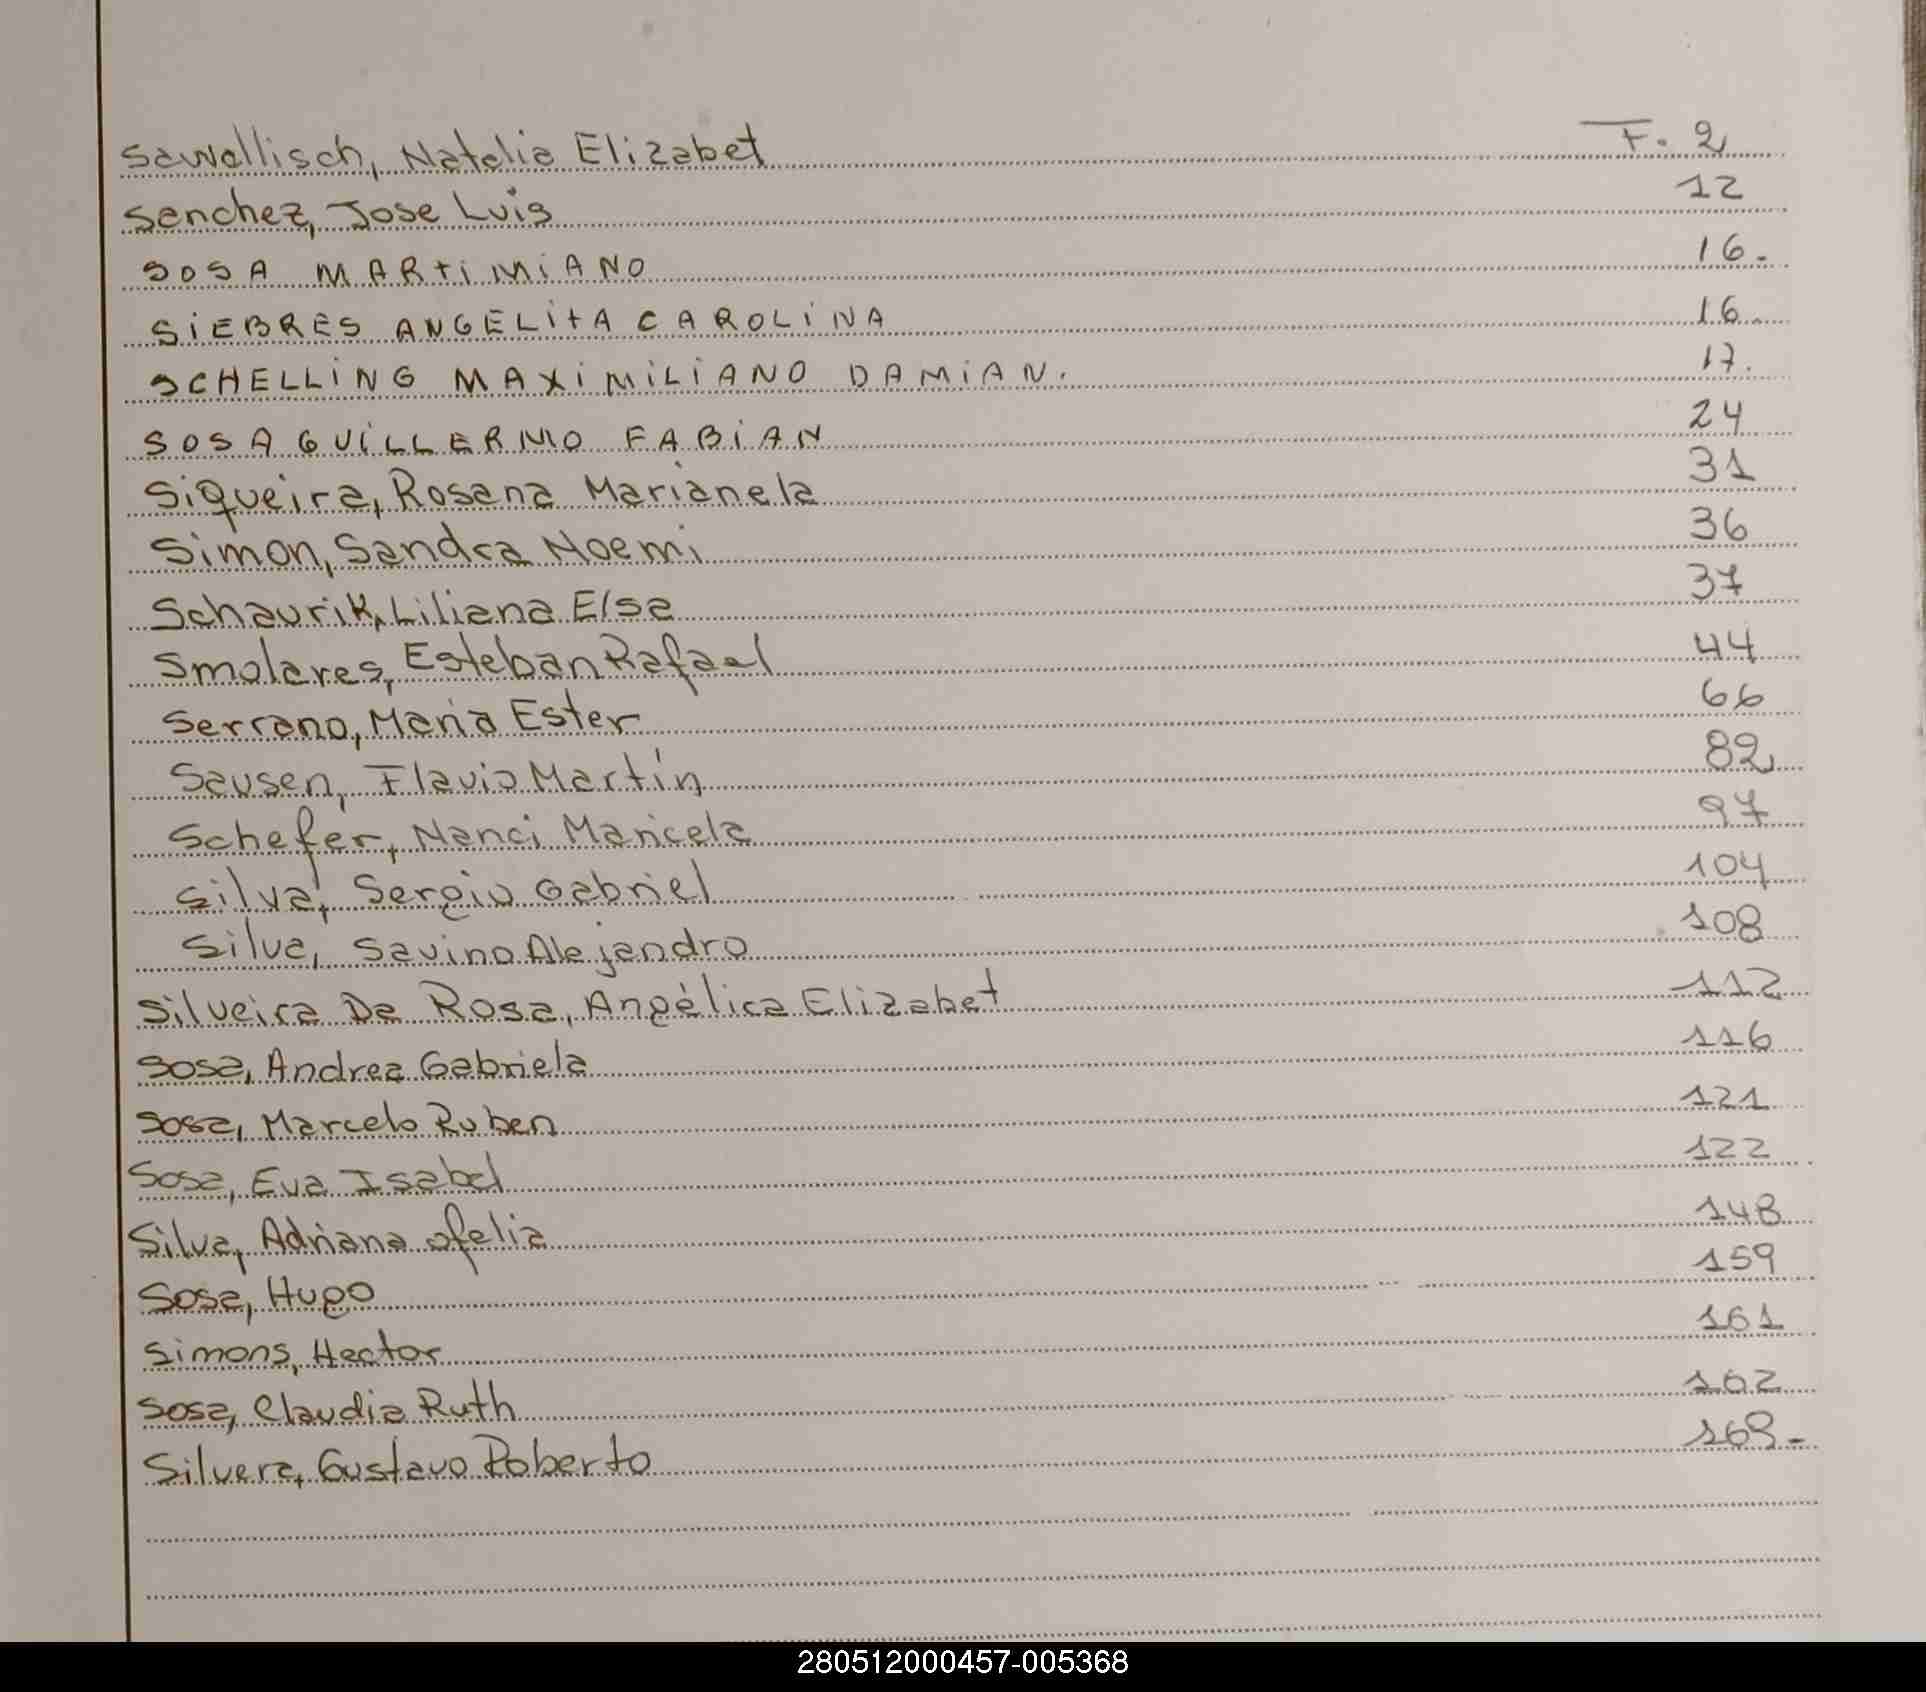 Sawallisch, Natalia Elizabet F. 2
Sanchez, Jose Luis 12
SOSA MARTIMIANO 16.
SIEBRES ANGELITA CAROLINA 16.
SCHELLING MAXIMILIANO DAMIAN. 17.
SOSA GUILLERMO FABIAN 24
Siqueira, Rosana Marianela 31
Simon, Sandra Noemi 36
Schaurik, Liliana Elsa 37
Smolares, Esteban Rafael 44
Serrano, Maria Ester 66
Sausen, Flavio Martín 82
Schefer, Nanci Maricela 97
Silva, Sergio Gabriel 104
Silva, Savino Alejandro 108
Silveira Da Rosa, Angélica Elizabet 112
Sosa, Andrea Gabriela 116
Sosa, Marcelo Ruben 121
Sosa, Eva Isabel 122
Silva, Adriana ofelia 148
Sosa, Hugo 159
Simons, Hector 161
Sosa, Claudia Ruth 162
Silvera, Gustavo Roberto 169-
280512000457-005368